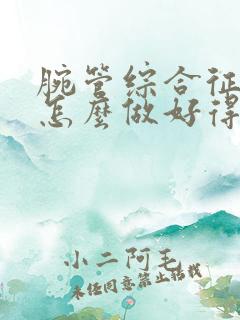 腕管综合征
怎麼做好得
小二阿毛
未经同意禁止转载